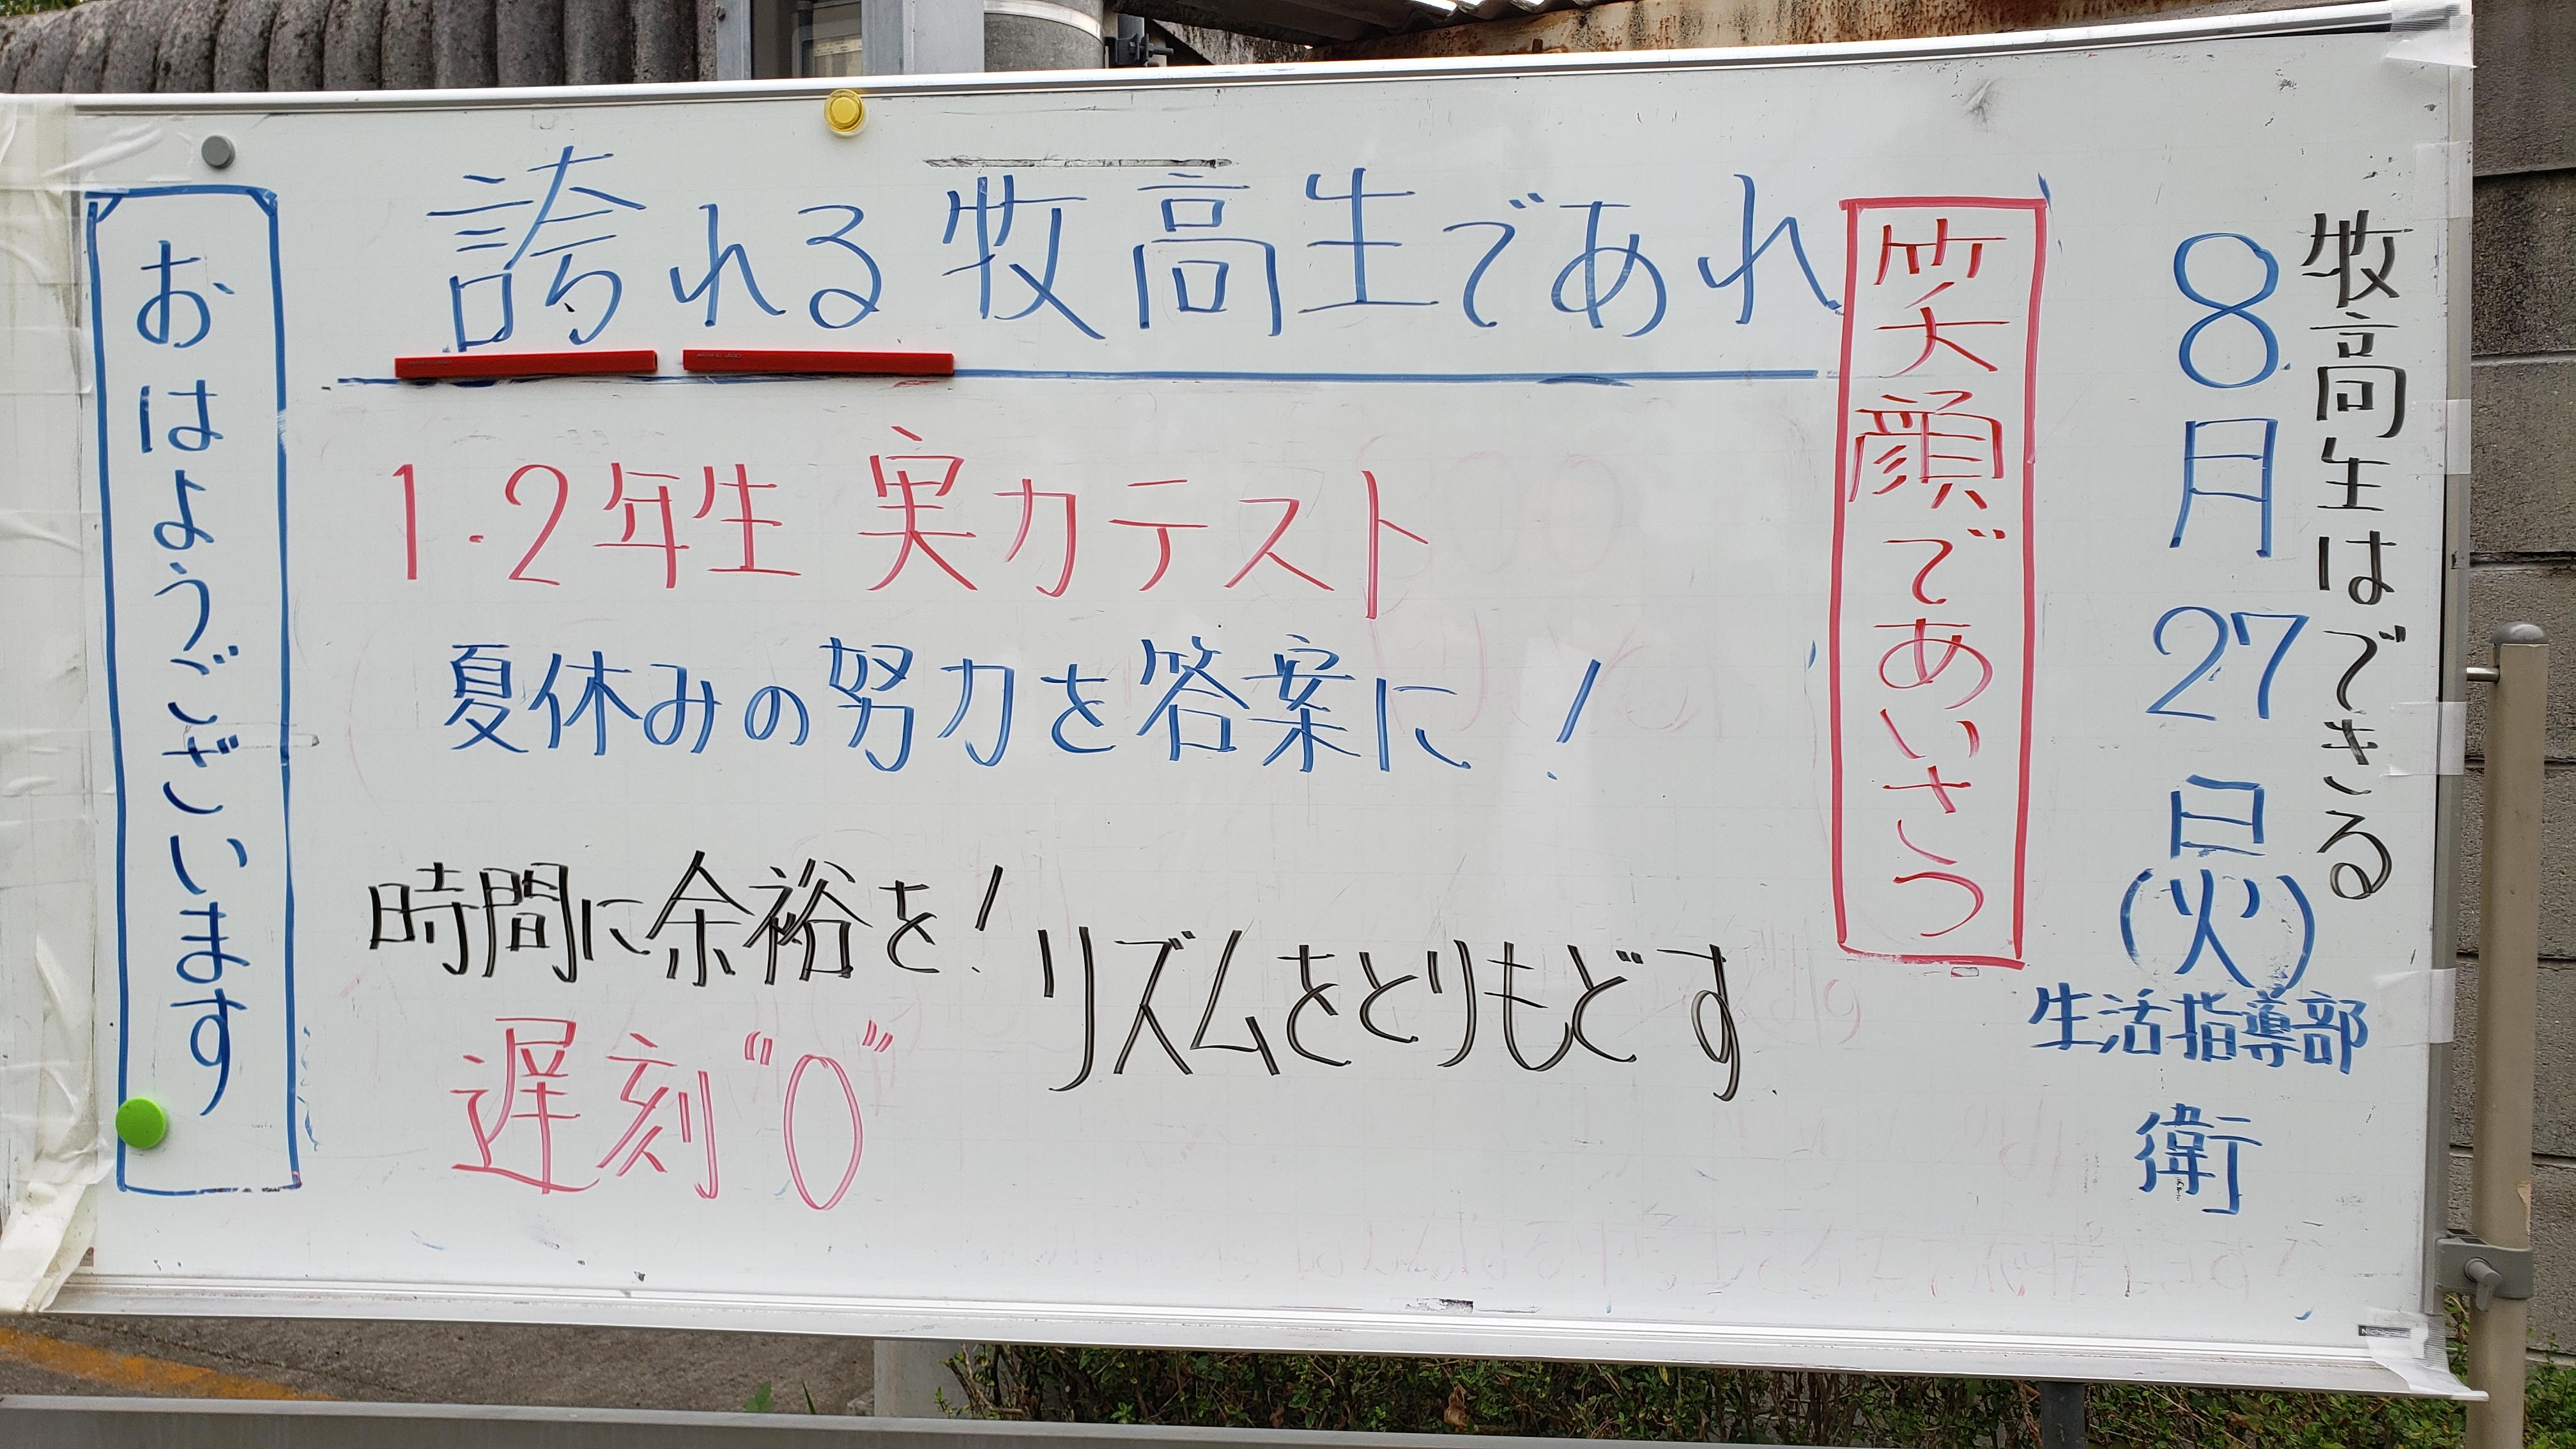 牧高生はできる
8月27日(火)
生活指導部
衛
笑顔であいさつ
誇れる牧高生であれ
1・2年生 実力テスト
夏休みの努力を答案に!
時間に余裕を!
リズムをとりもどす
遅刻"0"
おはようございます